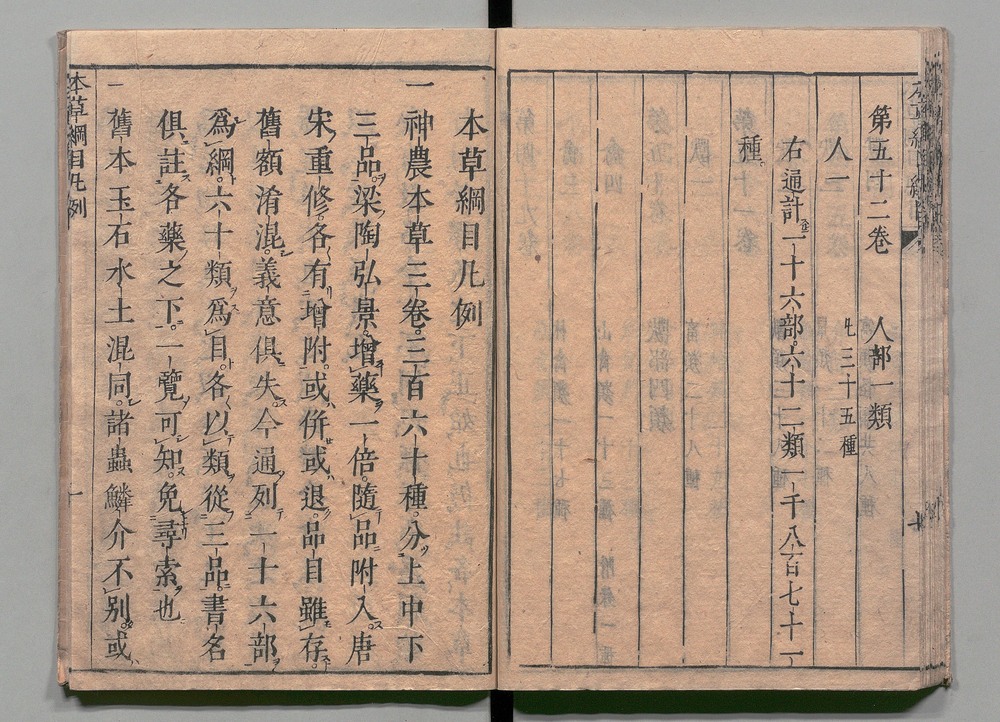 第五十二卷　人部一類
人一　凡三十五種
右通計二十六部六十二類一千八百七十一
種
本草綱目凡例
一神農本草三卷三百六十種分上中下
三品梁陶弘景增藥一倍隨品附入唐
宋重修各有增附或併或退品目雖存
舊額淆混義意俱失今通列一十六部
爲綱六十類爲目各以類從三品書名
俱註各藥之下一覽可知免尋索也
一舊本玉石水土混同諸蟲鱗介不別或
本草綱目凡例　一